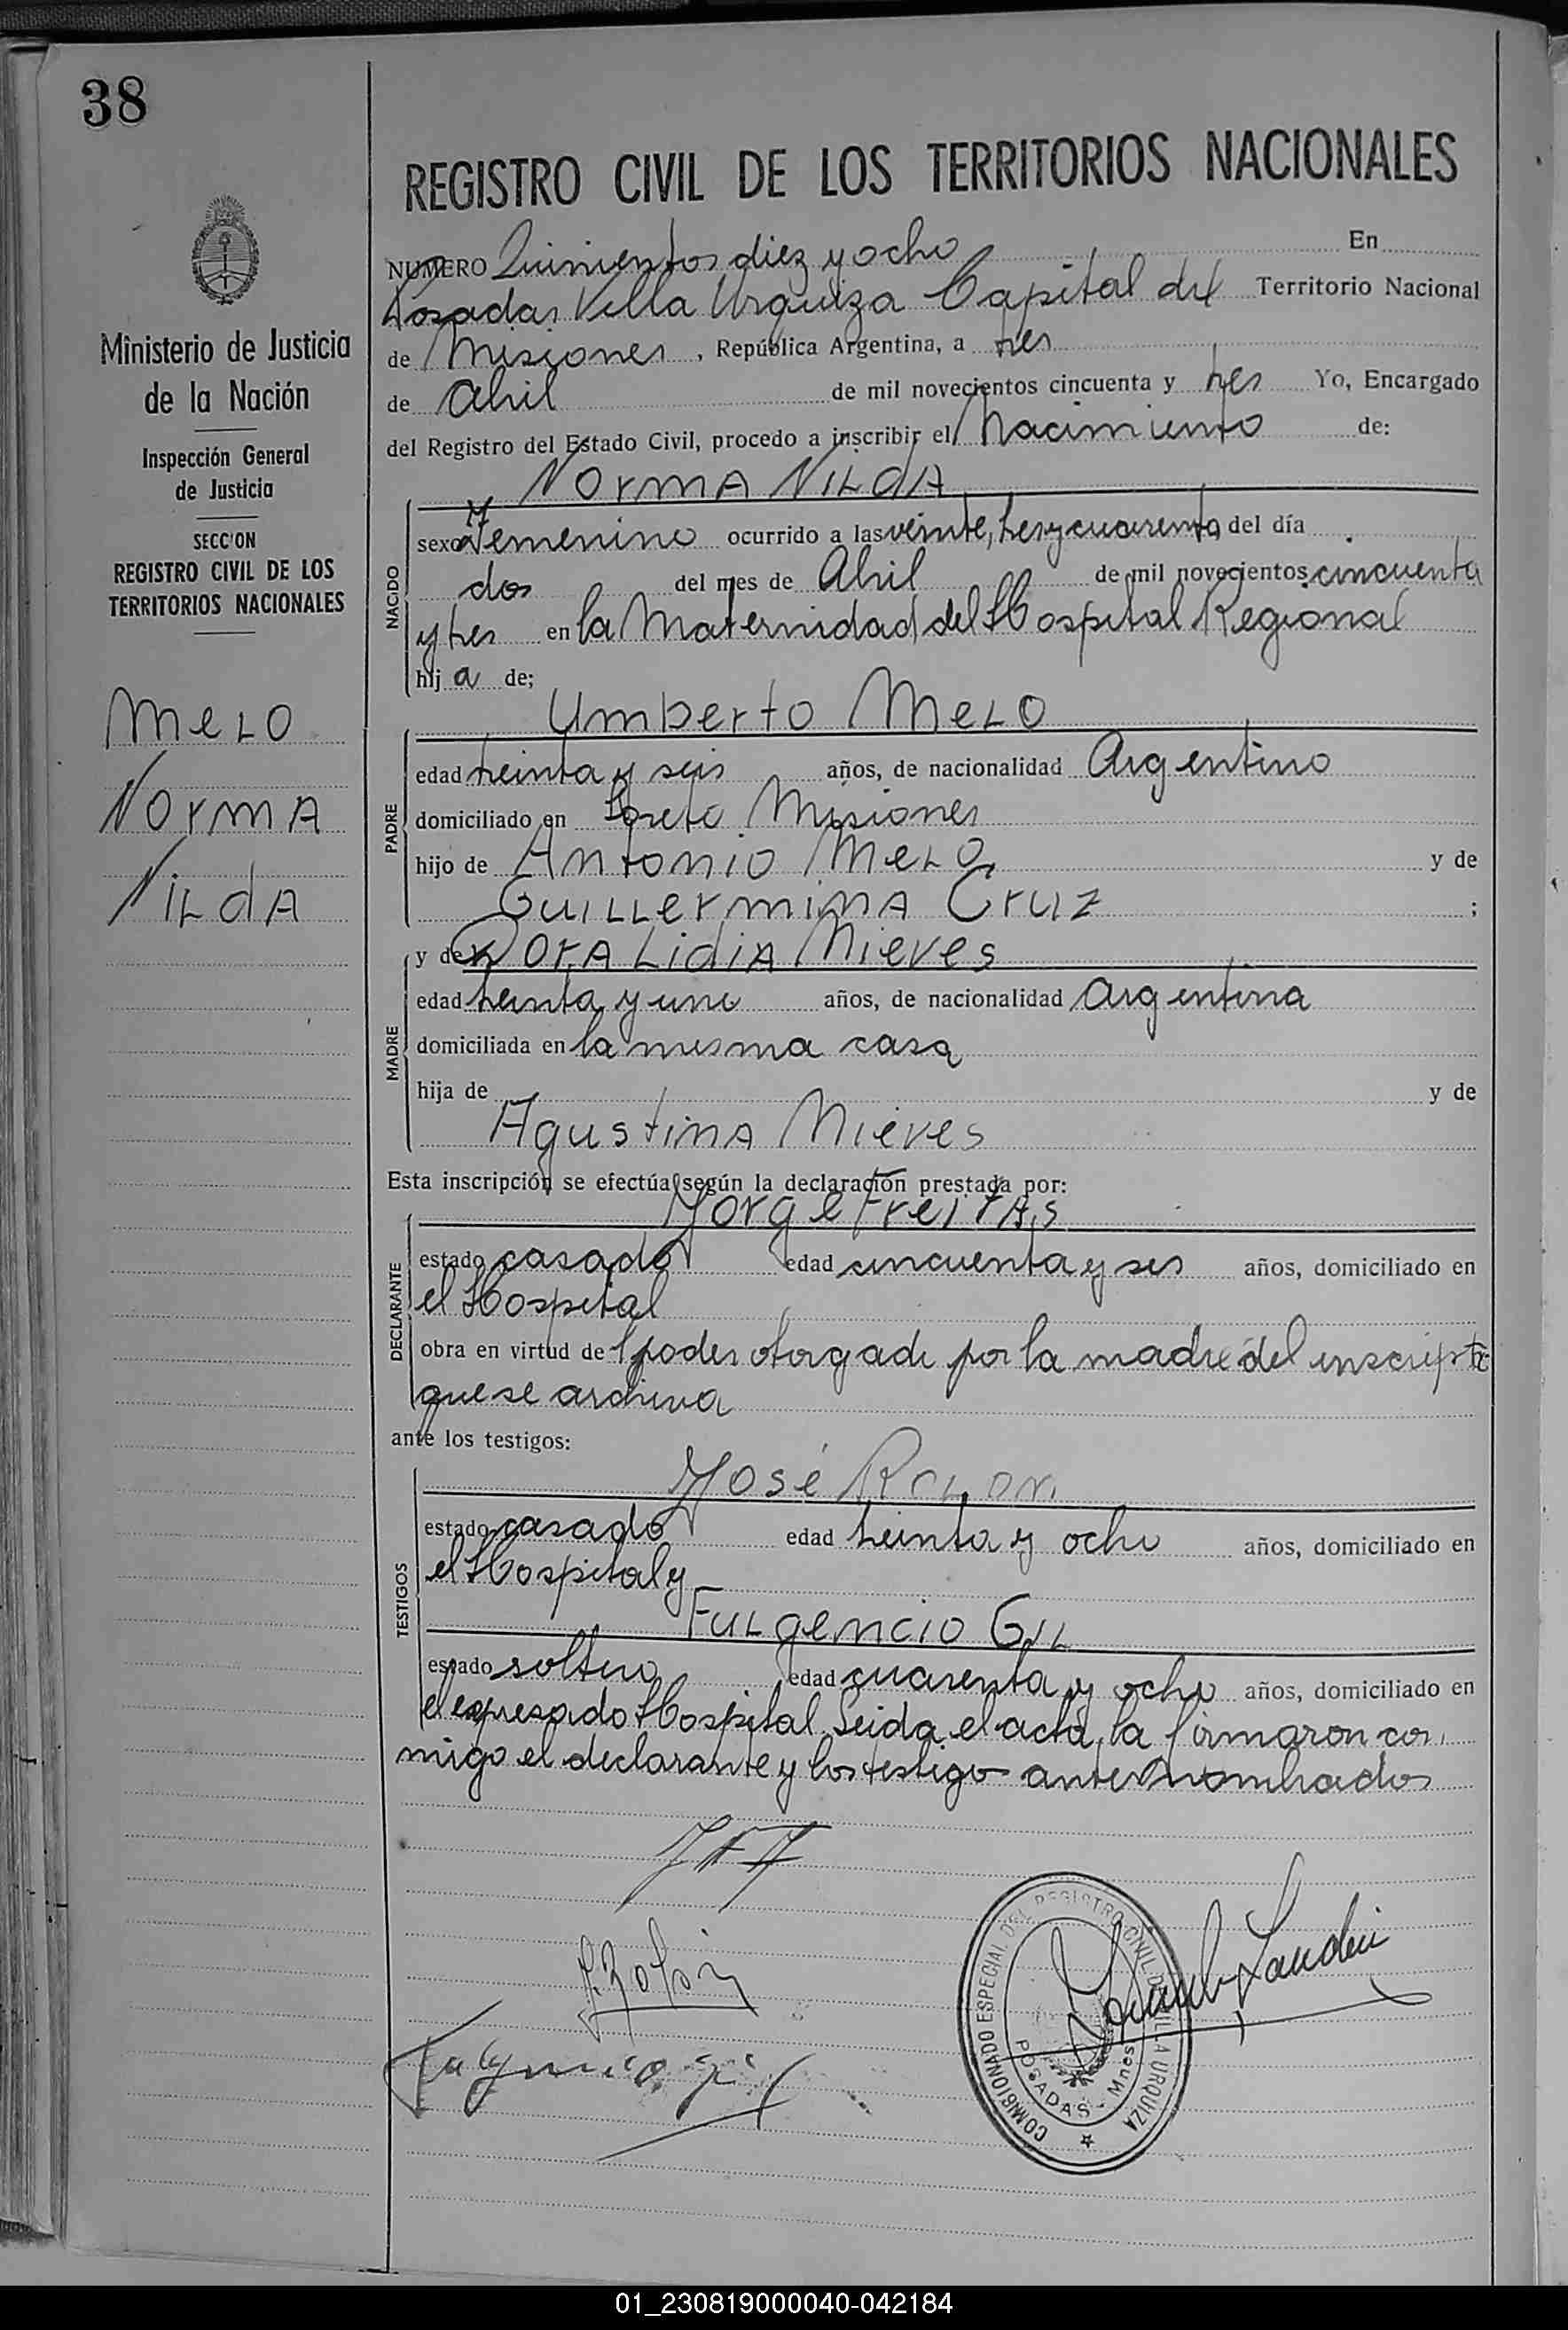 38
REGISTRO CIVIL DE LOS TERRITORIOS NACIONALES
Ministerio de Justicia
de la Nación
Inspección General
de Justicia
SECC'ON
REGISTRO CIVIL DE LOS
TERRITORIOS NACIONALES
MELO
NORMA
NILdA
NUMERO Quinientos diez y ocho En
Posadas Villa Urquiza Capital del Territorio Nacional
de Misiones, República Argentina, a tres
de Abril de mil novecientos cincuenta y tres Yo, Encargado
del Registro del Estado Civil, procedo a inscribir el Nacimiento de:
NORMA NILdA
NACIDO
sexo Femenino ocurrido a las veinte, tres y cuarenta del día
dos del mes de Abril de mil novecientos cincuenta
y tres en la Maternidad del Hospital Regional
hij a de;
Umberto MELO
PADRE
edad treinta y seis años, de nacionalidad Argentino
domiciliado en Loreto Misiones
hijo de Antonio MELO y de
GUILLermina Cruz ;
y de Dora Lidia Nieves
MADRE
edad treinta y uno años, de nacionalidad Argentina
domiciliada en la misma casa
hija de y de
Agustina Nieves
Esta inscripción se efectúa según la declaración prestada por:
Jorge Freitas
DECLARANTE
estado casado edad cincuenta y seis años, domiciliado en
el Hospital
obra en virtud de poder otorgado por la madre del inscripto
que se archiva
ante los testigos:
José ROLON
TESTIGOS
estado casado edad treinta y ocho años, domiciliado en
el Hospital y
FULgencio GIL
estado soltero edad cuarenta y ocho años, domiciliado en
el expresado Hospital. Leida el acta, la firmaron con
migo el declarante y los testigos antes nombrados
COMISIONADO ESPECIAL DEL REGISTRO CIVIL DE VILLA URQUIZA
POSADAS - Mnes
01_230819000040-042184